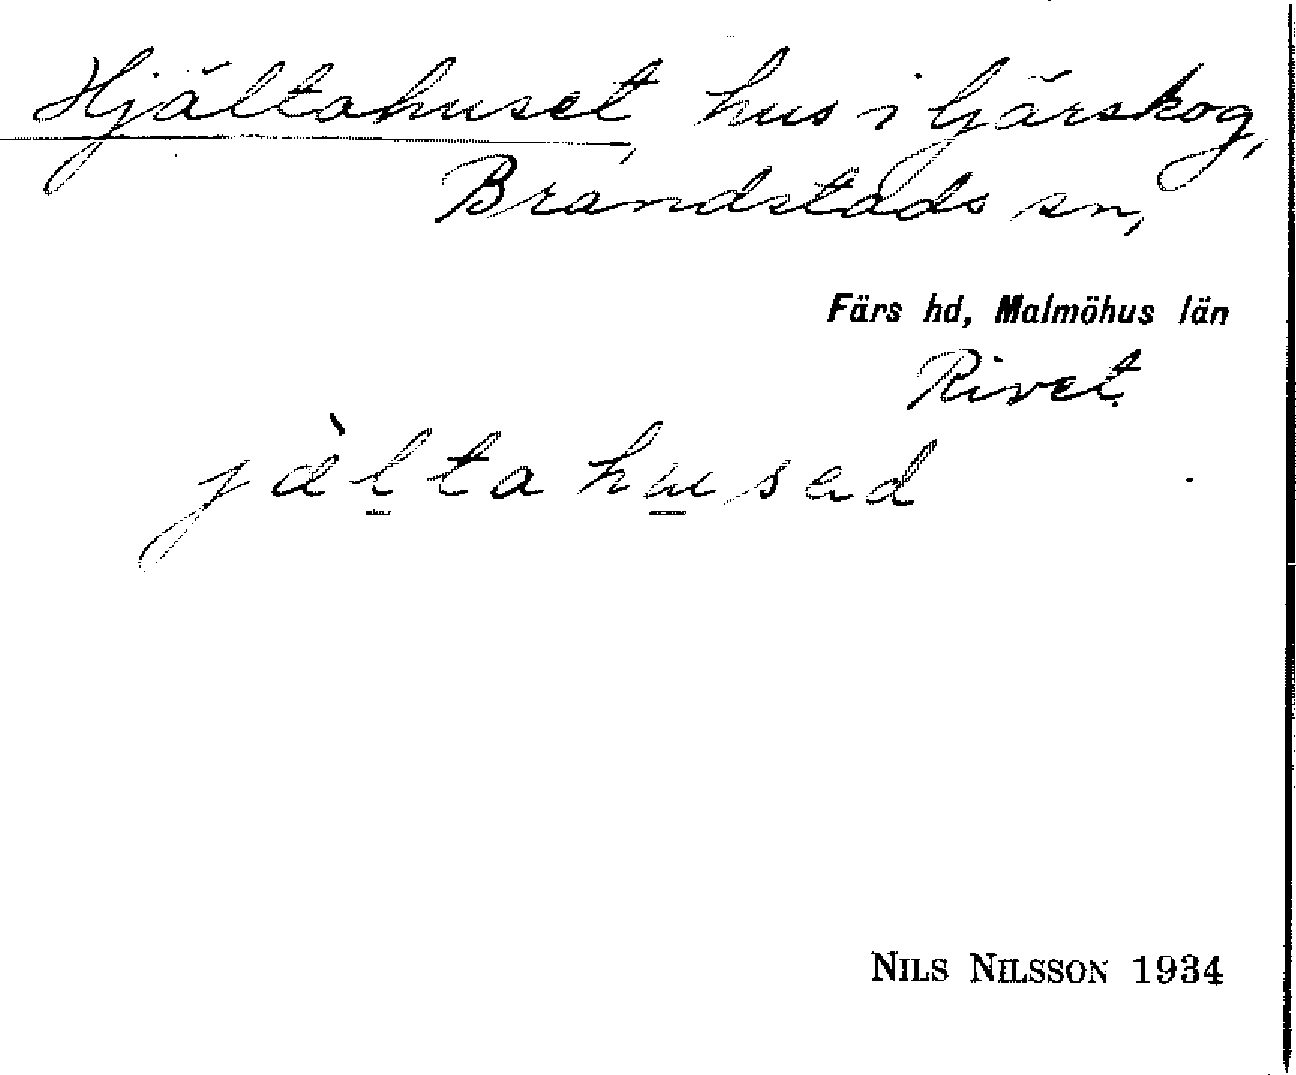 Hjältahuset, hus i Ljärskog,
Brandstads sn,
Färs hd, Malmöhus län
Rivet.
jàltahusad
NILS NILSSON 1934